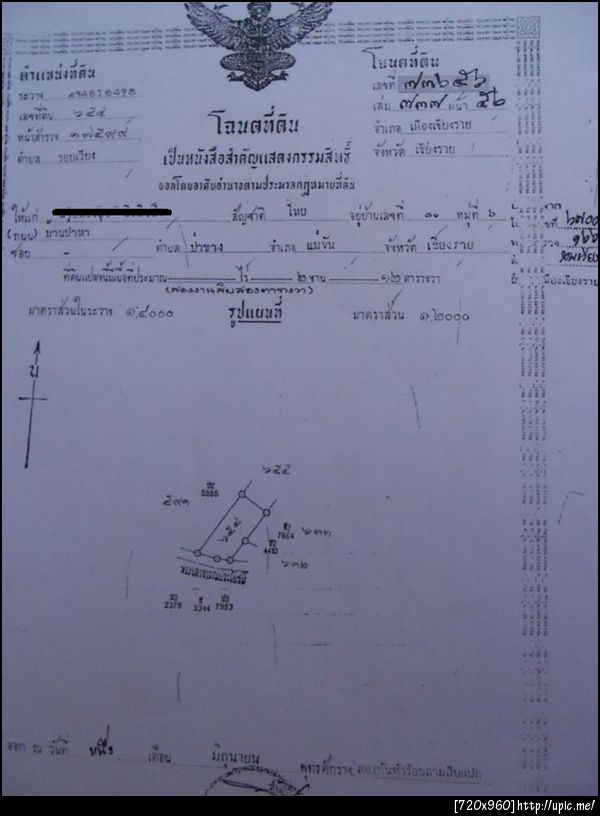 ตำแหน่งที่ดิน
ระวาง 4948 III 8498
เลขที่ดิน ๖๕๔
หน้าสำรวจ ๑๗๕๙๙
ตำบล รอบเวียง
โฉนดที่ดิน
เลขที่ ๗๓๖๕๖
เล่ม ๗๓๗ หน้า ๕๖
อำเภอ เมืองเชียงราย
จังหวัด เชียงราย
โฉนดที่ดิน
เป็นหนังสือสำคัญแสดงกรรมสิทธิ์
ออกโดยอาศัยอำนาจตามประมวลกฎหมายที่ดิน
ให้แก่ สัญชาติ ไทย อยู่บ้านเลขที่ ๑๐ หมู่ที่ ๖
(ถนน) บ้านป่าหา
ซอย - ตำบล ป่าซาง อำเภอ แม่จัน จังหวัด เชียงราย
ที่ดินแปลงนี้มีเนื้อที่ประมาณ - ไร่ ๒ งาน ๑๒ ตารางวา
(สองงานสิบสองตารางวา)
มาตราส่วนในระวาง ๑:๔๐๐๐ รูปแผนที่ มาตราส่วน ๑:๒๐๐๐
ที่ ๖๗๐๐
๑๖๖
รอบเวียง
เมืองเชียงราย
น
๖๕๕
๕๙๑
๖๕๔
7864
๖๓๓
4493
๖๓๒
ทางสาธารณประโยชน์
2379 3344 7953
ออก ณ วันที่ หนึ่ง เดือน มิถุนายน พุทธศักราช สองพันห้าร้อยสามสิบแปด
[720x960] http://upic.me/